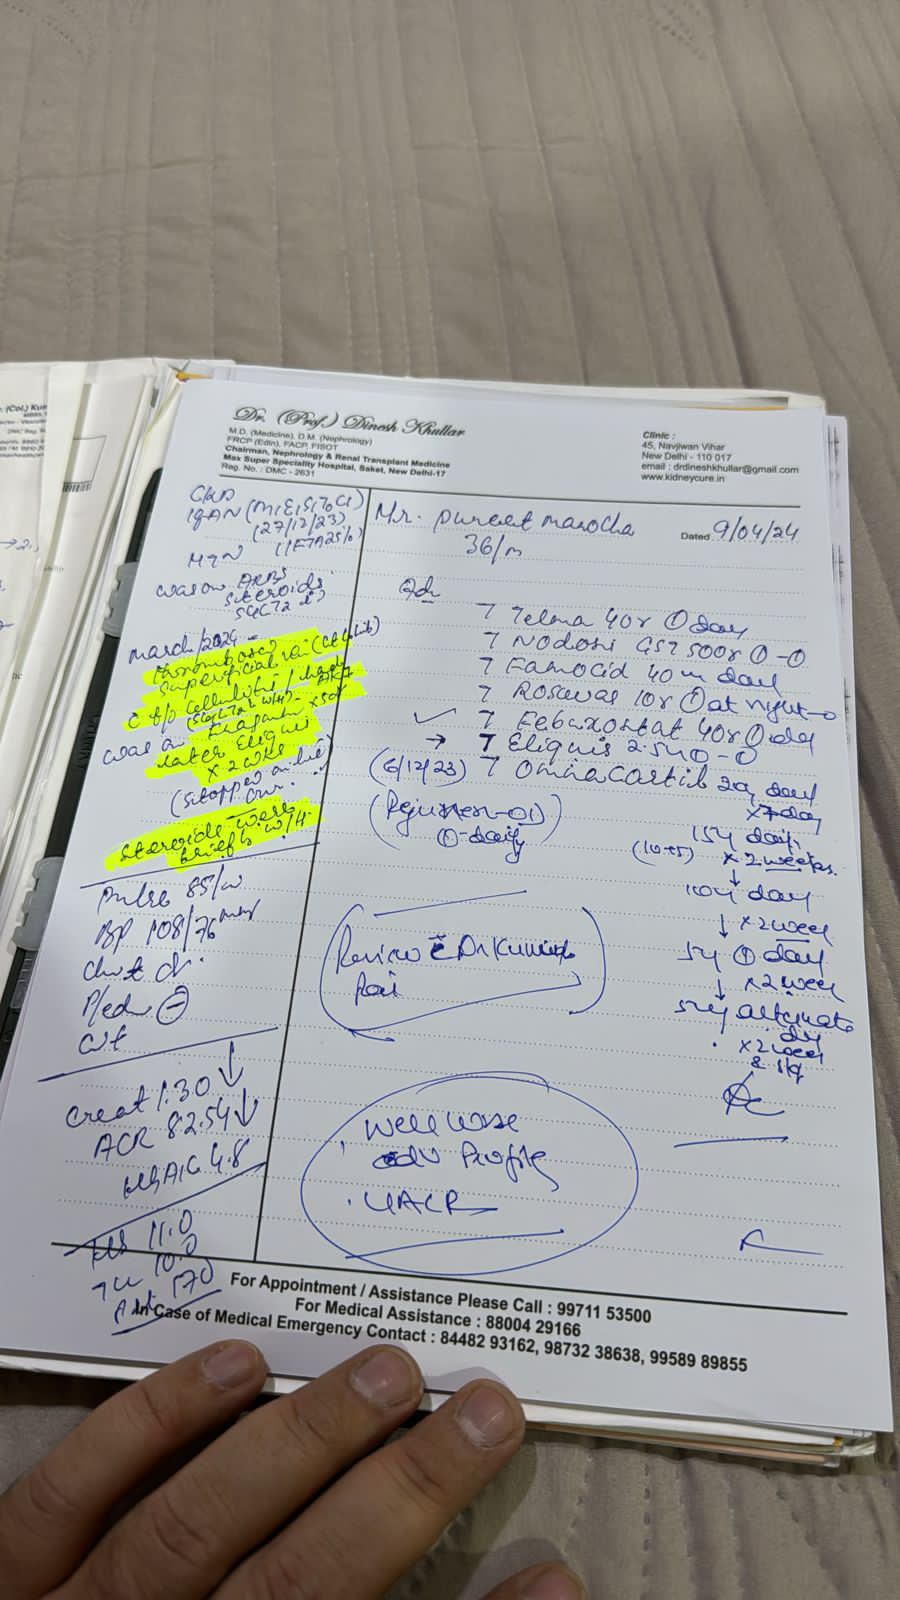 Dr. (Prof.) Dinesh Khullar
M.D. (Medicine), D.M. (Nephrology)
FRCP (Edin), FACP, FISOT
Chairman, Nephrology & Renal Transplant Medicine
Max Super Speciality Hospital, Saket, New Delhi-17
Reg. No. : DMC - 2631
Clinic :
45, Navjiwan Vihar
New Delhi - 110 017
email : drdineshkhullar@gmail.com
www.kidneycure.in
(Col.) Kum
CKD
IgAN (M1E1S1T0C1)
(27/12/23)
(IFTA 25%)
HTN
was on ARBs
steroids
SGLT2 i)
March/2024 -
superficial vein
cellulitis / hand
was on
later Eliquis
x 2 wks
(stopped
steroids were
briefly w/H.
Pulse 85/m
BP 108/76 mmHg
Chest cl.
P/ed (-)
Wt
Creat 1.30 ↓
ACR 82.54 ↓
HbA1C 4.8
Hb 11.0
TLC 10.0
Plt 170
Mr. Puneet Marocha
36/m
Dated 9/04/24
Adv
T Telma 40 ① day
T Nodosis GST 500 ①-①
T Famocid 40 m day
T Rosuvas 10 ① at night
✓ T Febuxostat 40 ① day
→ T Eliquis 2.5 ①-①
(6/12/23) T Omnacortil 20 day
x 7 day
15 daily
(10+5) x 2 weeks.
↓
10 day
↓ x 2 week
5 ① day
↓ x 2 week
5 alternate
day
x 2 week
& stop
① daily
Review c Dr Kumud
Rai
Well wise
adv Profile
. UACR
For Appointment / Assistance Please Call : 99711 53500
For Medical Assistance : 88004 29166
In Case of Medical Emergency Contact : 84482 93162, 98732 38638, 99589 89855